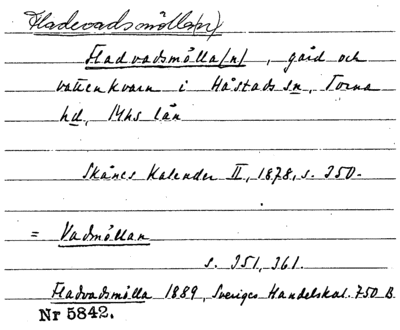 Fladevadsmölla(n)
Fladvadsmölla(n), gård och
vattenkvarn i Håstads sn, Torna
hd, Mhs län
Skånes Kalender II, 1878, s. 350.
= Vadmöllan
s. 351, 361.
Fladvadsmölla 1889, Sveriges Handelskal. 750 B
Nr 5842.